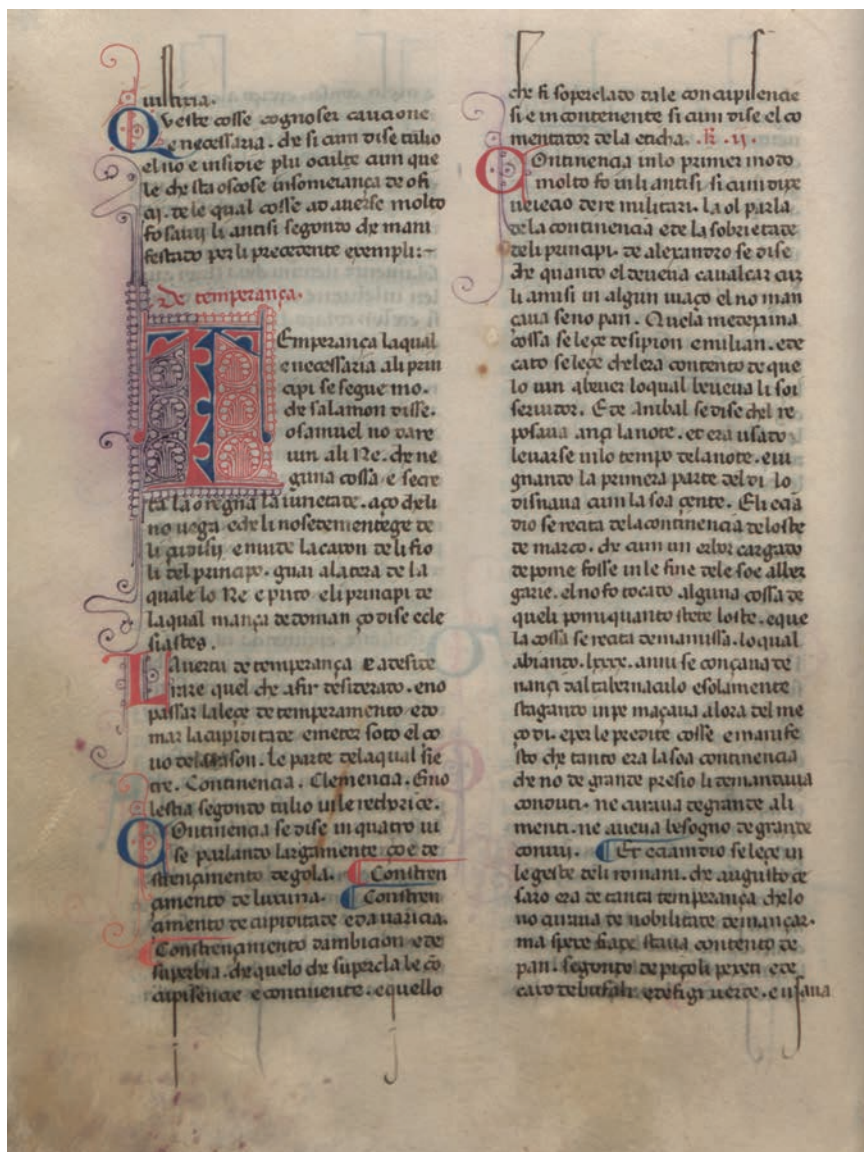 iusticia.
Queste cosse cognosser caucione
e necessaria. che si cum dise tulio
el no e insidie plu oculte cum que
le che sta oscose in someiança de ofi
cij. de le qual cosse ad auerse molto
fo sauij li antisi segondo che mani
festado per li precedente exempli:-
De temperança.
Temperança la qual
e necessaria a li prin
cipi se segue mo.
che salamon disse.
o samuel no dare
uin a li Re. che ne
guna cossa e secre
ta la o regna la iunetade. aço che li
no uega e che li no sedementege de
li çudisij e mude la cason de li fio
li del principo. guai a la tera de la
quale lo Re e puto e li principi de
la qual mança de doman ço dise ecle
siastes.
La uertu de temperança e a deside
rare quel che a fir desiderado. e no
passar la leçe de temperamento e do
mar la cupiditade e meter soto el co
uo de la rason. Le parte de la qual sie
tre. Continencia. Clemencia. Eno
lestia segondo tulio in le rethorice.
Continencia se dise in quatro ui
se parlando largamente ço e de
strençamento de gola. Constren
çamento de luxuria. Constren
çamento de cupiditade e da uaricia.
Constrençamento dambicion e de
superbia. che quelo che supercla le co
cupisencie e continente. e quello
che fi soperclado da le concupisencie
si e incontenente si cum dise el co
mentador de la eticha. k. ij.
Continencia in lo primer modo
molto fo in li antisi si cum dixe
uecio de re militari. la ol parla
de la continencia e de la sobrietade
de li principi. de alexandro se dise
che quando el deueua caualcar cuz
li antisi in algun uiaço el no man
çaua se no pan. Quela medexima
cossa se leçe de sipion emilian. e de
cato se leçe chel era contento de que
lo uin a beuer lo qual beueua li soi
seruidor. E de Anibal se dise chel re
posaua ançi la note. et era usado
leuarse in lo tempo de la note. e in
gnando la primera parte del di lo
disnaua cum la soa çente. El i ecia
dio se recita de la continencia de loste
de marco. che cum un erbor cargado
de pome fosse in le fine de le soe alber
garie. el no fo tocado alguna cossa de
queli pomi quanto stete loste. e que
la cossa se recita de manussa. lo qual
abiando. lxxx. anni se conçaua de
nançi dal tabernaculo e solamente
stagando in pe maçaua a lora del me
ço di. e per le predite cosse e manife
sto che tanto era la soa continencia
che no de grande presio li demandaua
conduti. ne curaua de grande ali
menti. ne aueua besogno de grande
conuij. Et eciamdio se leçe in
le geste de li romani. che augusto ce
saro era de tanta temperança chelo
no curaua de nobilitade de mançar.
ma spese fiade staua contento de
pan. segondo de piçoli pexeti e de
caxo de bufale e de figi uerde. e usaua